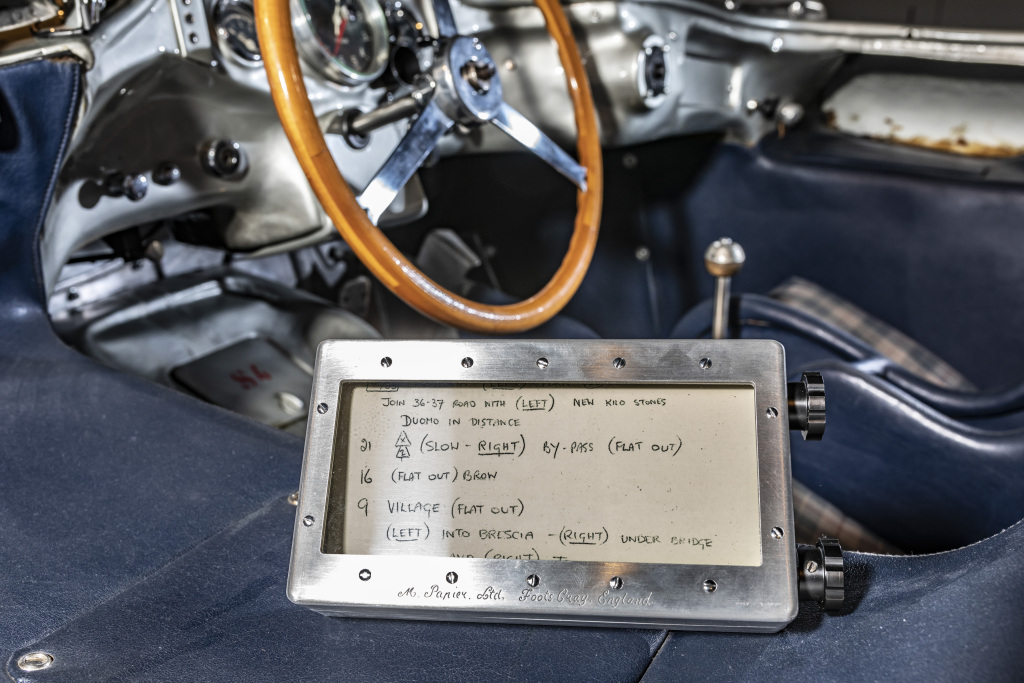 JOIN 36-37 ROAD WITH (LEFT) NEW KILO STONES
DUOMO IN DISTANCE
21 (SLOW - RIGHT) BY-PASS (FLAT OUT)
16 (FLAT OUT) BROW
9 VILLAGE (FLAT OUT)
(LEFT) INTO BRESCIA - (RIGHT) UNDER BRIDGE
AND (RIGHT)
M. Papier. Ltd. Foots Cray, England
S4